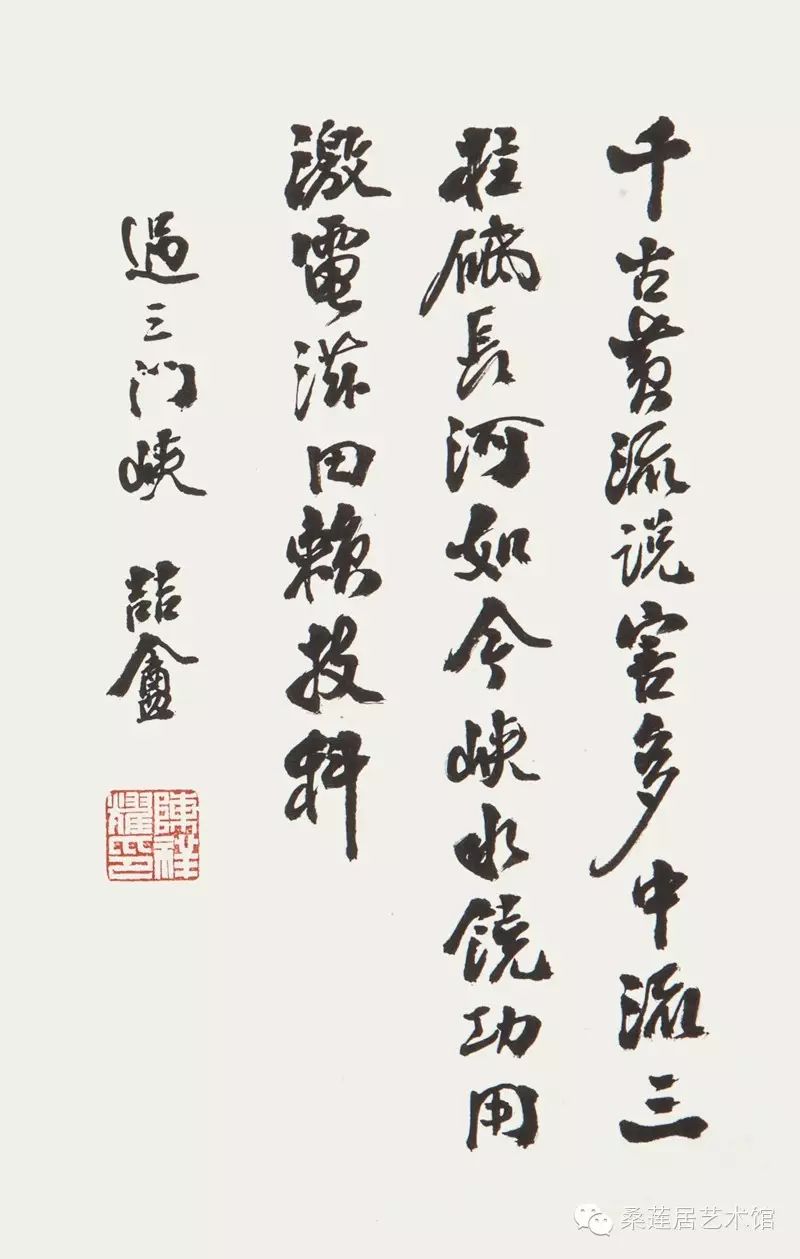 千古黄流说害多中流三
柱砥長河如今峡水饶功用
激電滋田赖技科
過三门峡 喆盦
陳祥耀印
桑莲居艺术馆